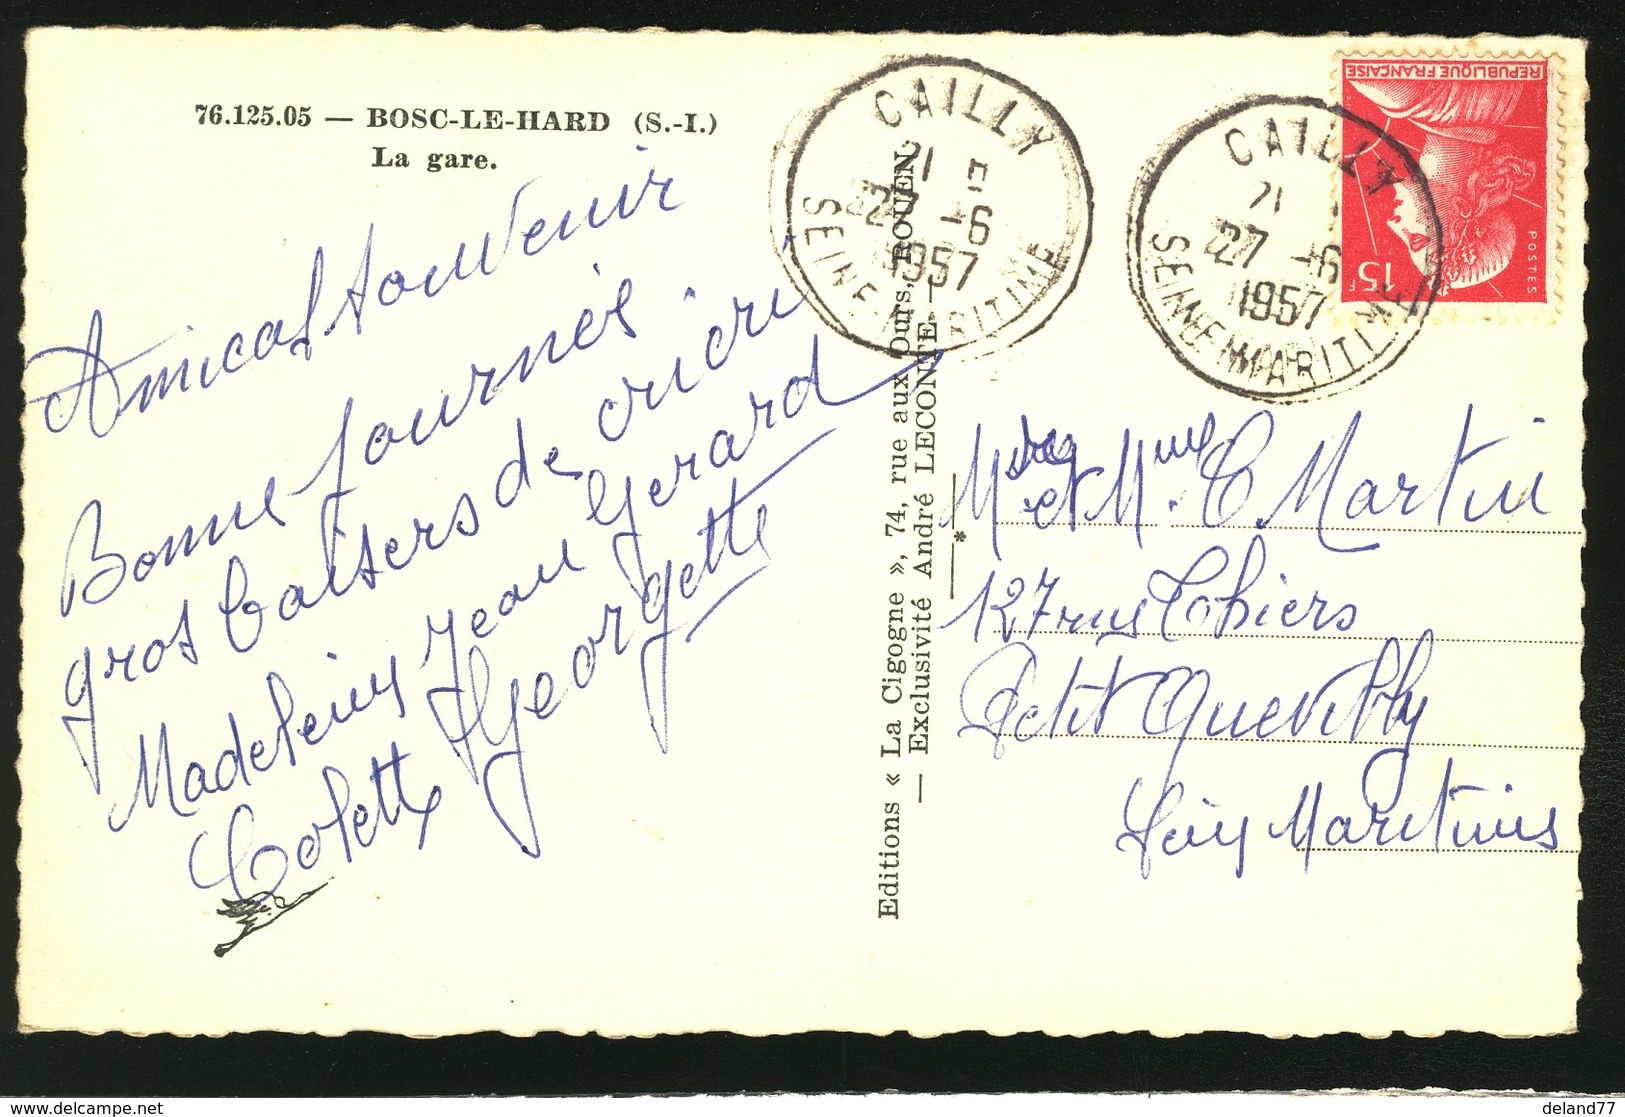 76.125.05 — BOSC-LE-HARD (S.-I.)
La gare.
Amical souvenir
Bonne journés
gros baisers de
Madeleine Jean Gérard
Colette Georgette
Editions « La Cigogne », 74, rue aux Ours, ROUEN
— Exclusivité André LECONTE —
*
CAILLY
21
27 -6
1957
SEINE-MARITIME
CAILLY
21
27 -6
1957
SEINE-MARITIME
REPUBLIQUE FRANÇAISE
POSTES
15F
Mr et Mme C. Martin
127 rue Thiers
Petit Quevilly
Seine Maritime
deland77